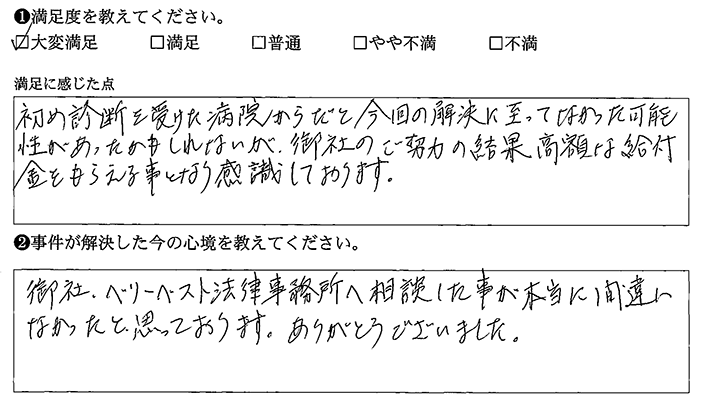 ❶満足度を教えてください。
☑大変満足 □満足 □普通 □やや不満 □不満
満足に感じた点
初め診断を受けた病院からだと今回の解決に至ってなかった可能
性があったかもしれないが、御社のご努力の結果高額な給付
金をもらえる事となり感識しております。
❷事件が解決した今の心境を教えてください。
御社、ベリーベスト法律事務所へ相談した事が本当に間違い
なかったと思っております。ありがとうございました。